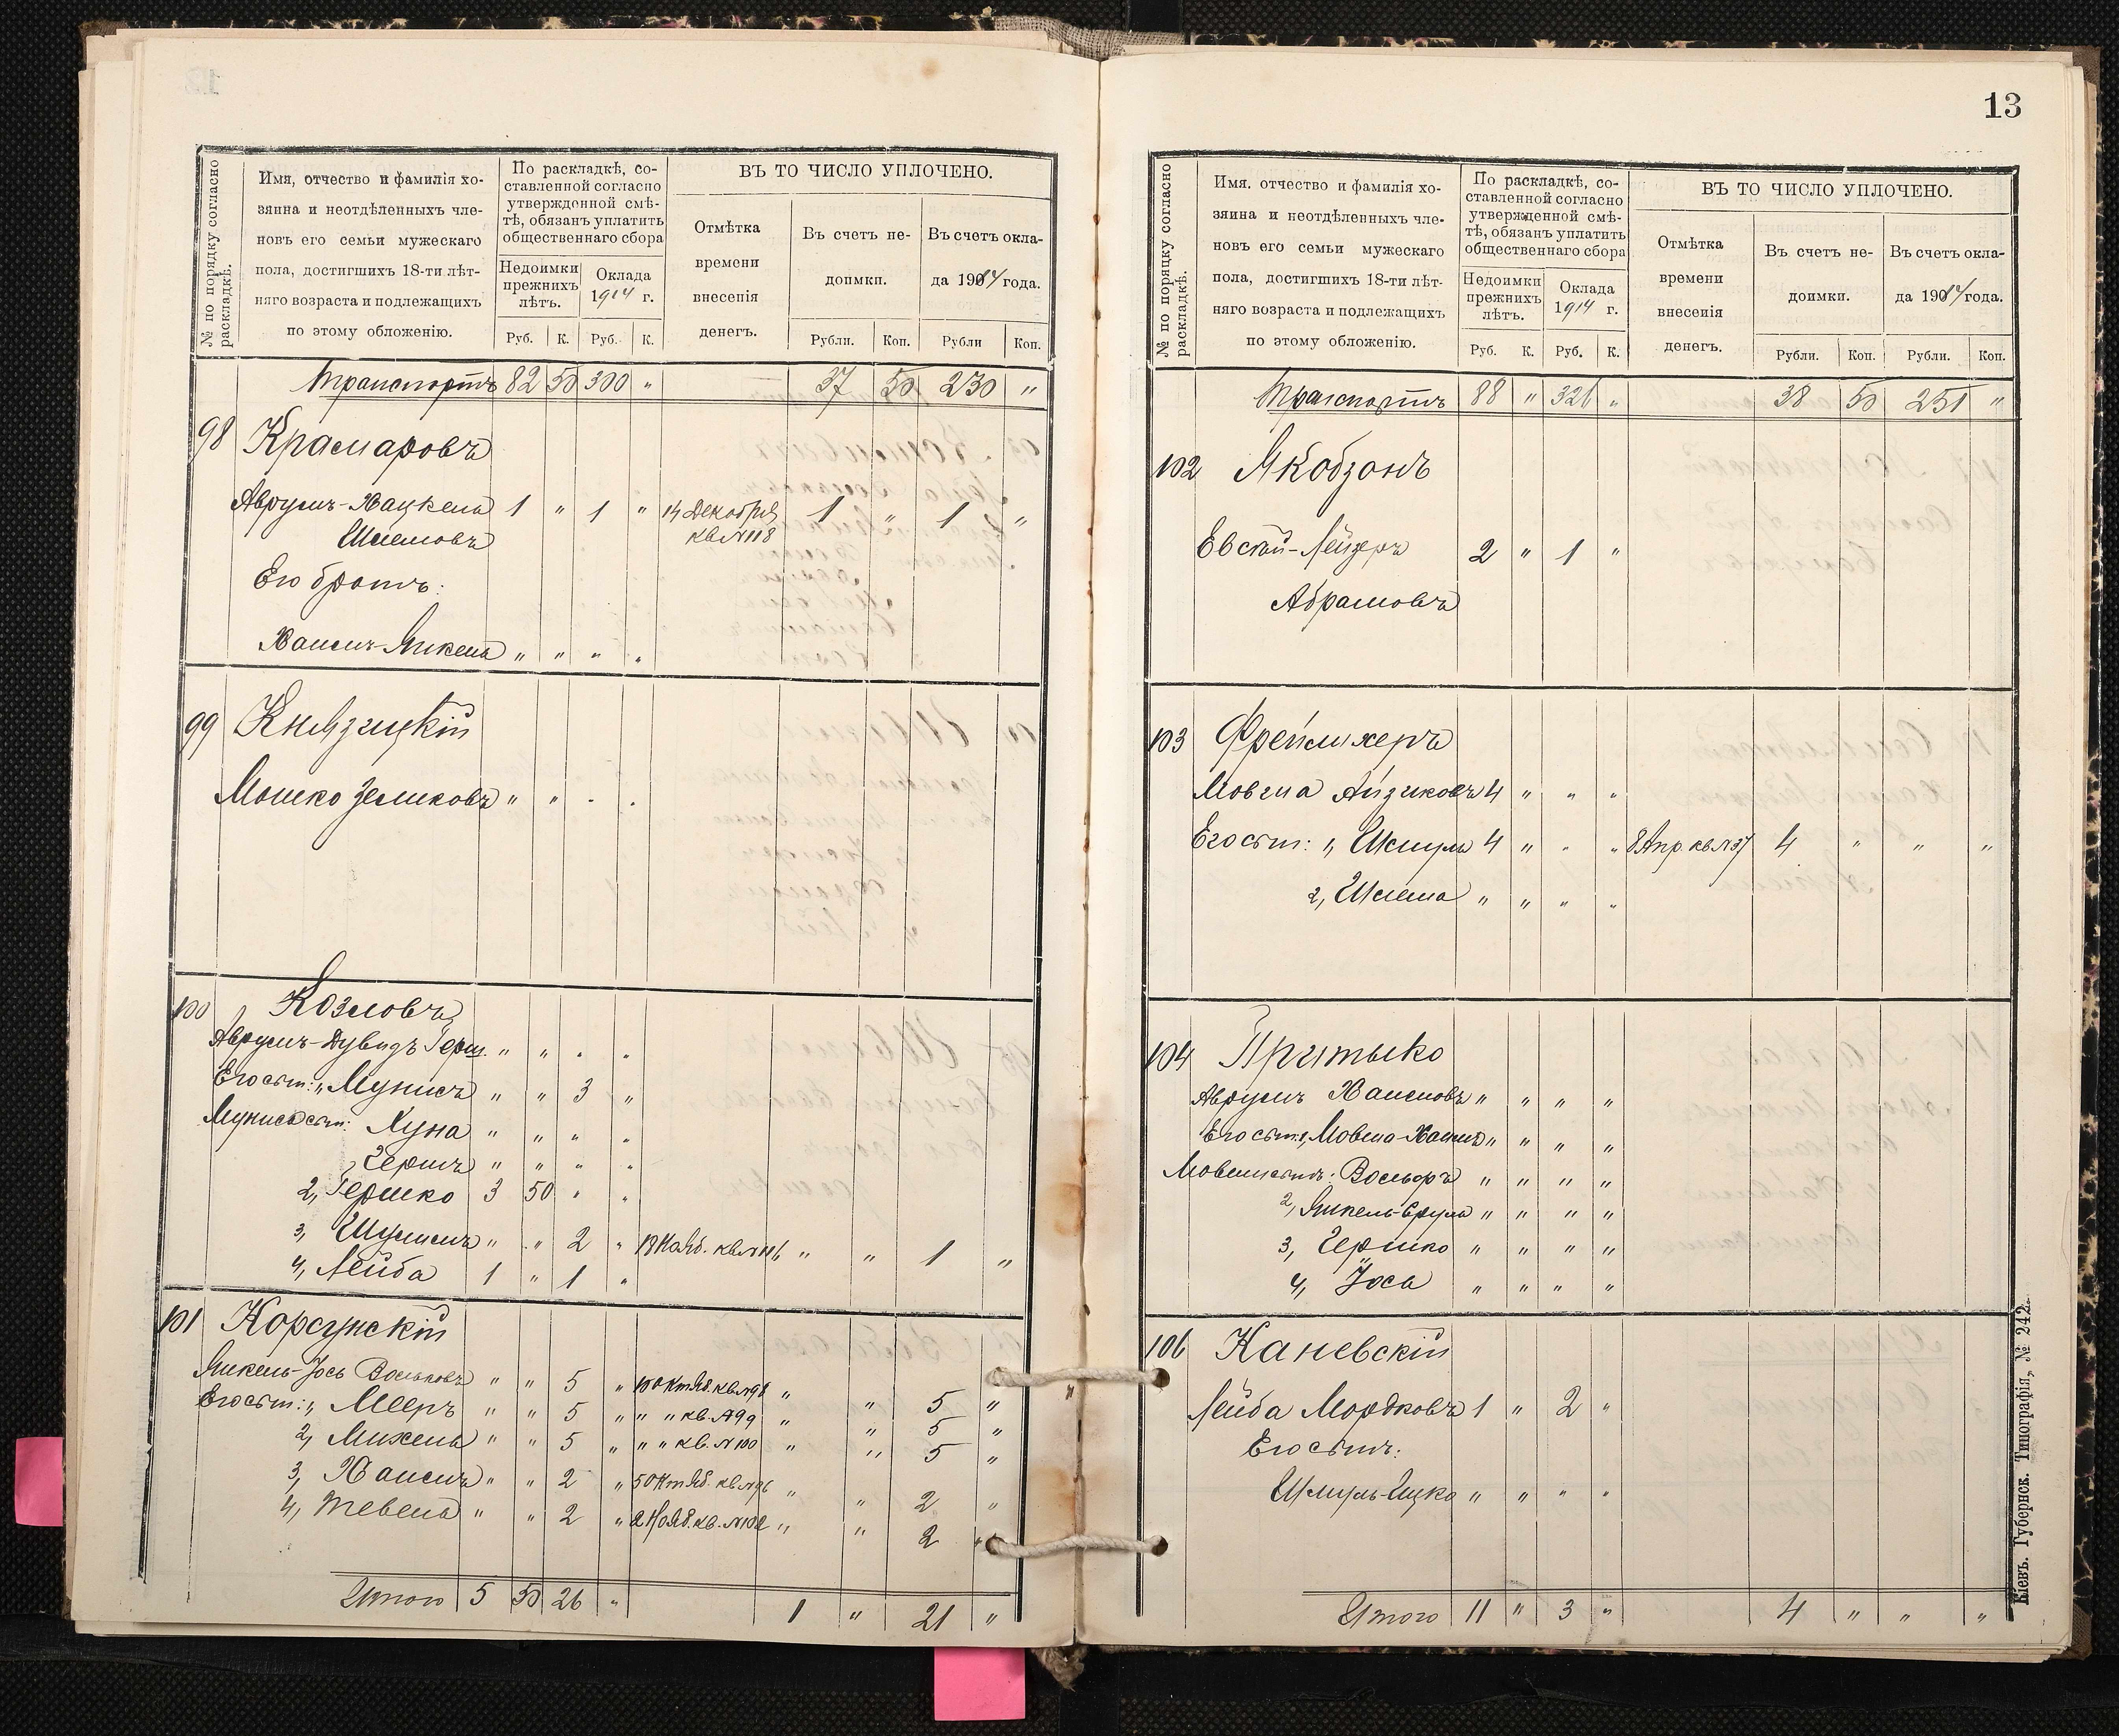 № по порядку согласно раскладкѣ.
Имя, отчество и фамилія хо-
зяина и неотдѣленныхъ чле-
новъ его семьи мужескаго
пола, достигшихъ 18-ти лѣт-
няго возраста и подлежащихъ
по этому обложенію.
По раскладкѣ, со-
ставленной согласно
утвержденной смѣ-
тѣ, обязанъ уплатить
общественнаго сбора
Недоимки прежнихъ лѣтъ.
Оклада 1914 г.
Руб. К. Руб. К.
ВЪ ТО ЧИСЛО УПЛОЧЕНО.
Отмѣтка
времени
внесенія
денегъ.
Въ счетъ не-
доимки.
Въ счетъ окла-
да 1914 года.
Рубли. Коп. Рубли Коп.
Транспортъ 82 50 300 " — 37 50 230 "
98 Крамаровъ
Аврумъ-Хацкель 1 " 1 " 14 Декабря 1 " 1 "
Шлемовъ кв №118
Его братъ:
Хаимъ-Янкель " " " "
99 Князицкій
Мошко Зеликовъ " " " "
100 Козловъ
Аврумъ-Дувидъ Герш. " " " "
Его сын: 1, Мунисъ " " 3 "
Муниса сын: Хуна " " " "
Герша " " " "
2, Гершко 3 50 " "
3, Шулимъ " " 2 " 13 Нояб. кв №116 " " 1 "
4, Лейба 1 " 1 "
101 Корсунскій
Янкель-Іось Вольковъ " " 5 " 10 Октяб. кв №98 " " 5 "
Его сын: 1, Мееръ " " 5 " " " кв. №99 " " 5 "
2, Михель " " 5 " " " кв. №100 " " 5 "
3, Хаимъ " " 2 " 5 Октяб. кв №96 " " 2 "
4, Тевель " " 2 " 2 Нояб. кв. №102 " " 2 "
Итого 5 50 26 " 1 " 21 "
13
№ по порядку согласно раскладкѣ.
Имя. отчество и фамилія хо-
зяина и неотдѣленныхъ чле-
новъ его семьи мужескаго
пола, достигшихъ 18-ти лѣт-
няго возраста и подлежащихъ
по этому обложенію.
По раскладкѣ, со-
ставленной согласно
утвержденной смѣ-
тѣ, обязанъ уплатить
общественнаго сбора
Недоимки прежнихъ лѣтъ.
Оклада 1914 г.
Руб. К. Руб. К.
ВЪ ТО ЧИСЛО УПЛОЧЕНО.
Отмѣтка
времени
внесенія
денегъ.
Въ счетъ не-
доимки.
Въ счетъ окла-
да 1914 года.
Рубли. Коп. Рубли. Коп.
Транспортъ 88 " 326 " 38 50 251 "
102 Якобзонъ
Евсѣй-Лейзеръ 2 " 1 "
Абрамовъ
103 Фреймхеръ
Мовша Айзиковъ 4 " " "
Его сын: 1, Шмуль 4 " " " 8 Апр. кв №37 4 " " "
2, Шлема " " " "
104 Притыко
Аврумъ Хаимовъ " " " "
Его сын: Мовша-Хаимъ " " " "
Мовши сынъ: Вольфъ " " " "
2, Янкель-Сруль " " " "
3, Гершко " " " "
4, Іось " " " "
106 Каневскій
Лейба Мордковъ 1 " 2 "
Его сынъ:
Шмуль-Ицко " " " "
Итого 11 " 3 " 4 " " "
Кіевъ. Губернск. Типографія, № 242.